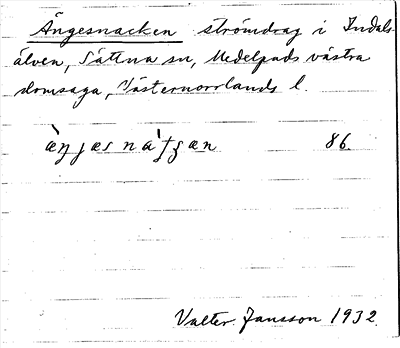 Ängesnacken strömdrag i Indals-
älven, Sättna sn, Medelpads västra
domsaga, Västernorrlands l.
86.
Valter Jansson 1932.